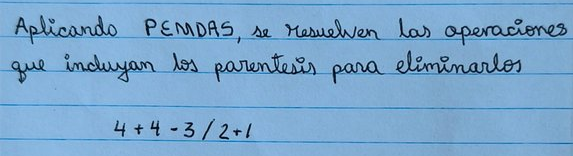 Aplicando PEMDAS, se resuelven las operaciones
que incluyan los parentesis para eliminarlos
4 + 4 - 3 / 2 + 1